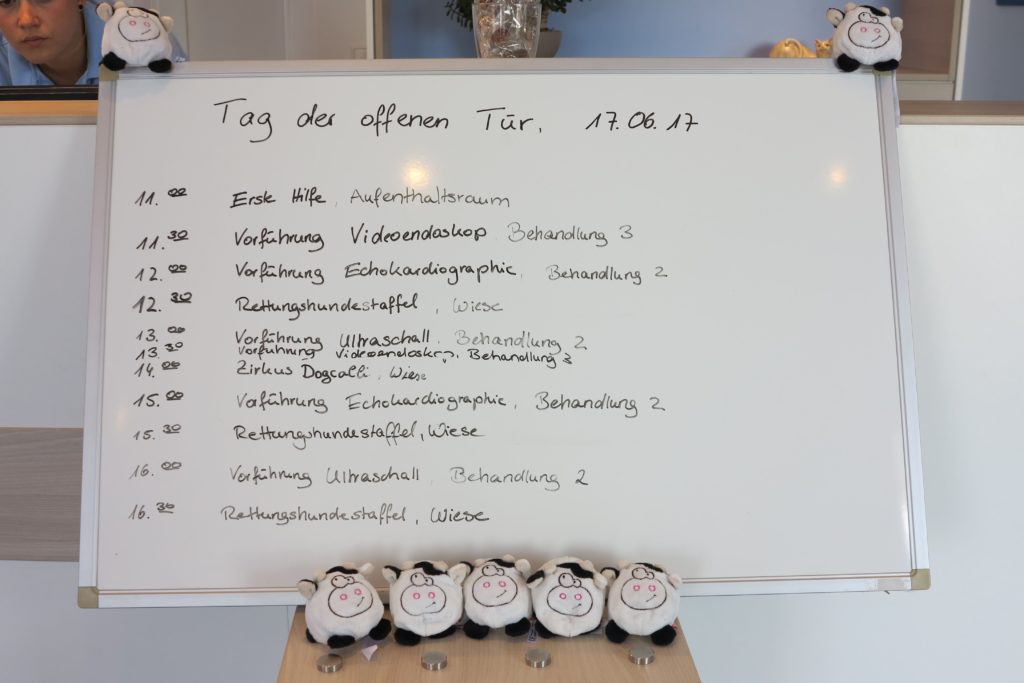 Tag der offenen Tür, 17.06.17
11.00 Erste Hilfe, Aufenthaltsraum
11.30 Vorführung Videoendoskop, Behandlung 3
12.00 Vorführung Echokardiographie, Behandlung 2
12.30 Rettungshundestaffel, Wiese
13.00 Vorführung Ultraschall, Behandlung 2
13.30 Vorführung Videoendoskop, Behandlung 3
14.00 Zirkus Dogcalli, Wiese
15.00 Vorführung Echokardiographie, Behandlung 2
15.30 Rettungshundestaffel, Wiese
16.00 Vorführung Ultraschall, Behandlung 2
16.30 Rettungshundestaffel, Wiese